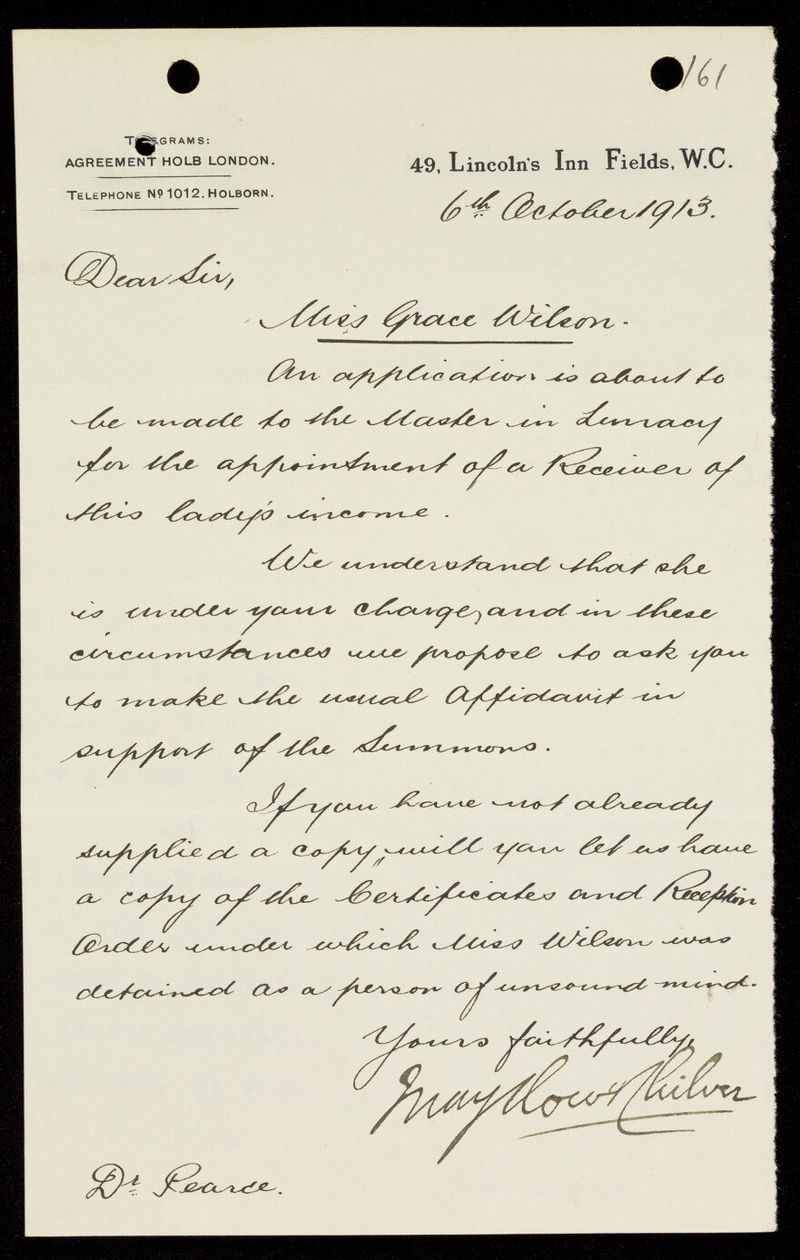 161
TELEGRAMS:
AGREEMENT HOLB LONDON.
TELEPHONE No 1012. HOLBORN.
49, Lincoln's Inn Fields, W.C.
6th October 1913.
Dear Sir,
Miss Grace Wilson.
An application is about to
be made to the Master in Lunacy
for the appointment of a Receiver of
this lady's income.
We understand that she
is under your charge, and in these
circumstances we propose to ask you
to make the usual Affidavit in
support of the Summons.
If you have not already
supplied a copy, will you let us have
a copy of the Certificates and Reception
Order under which Miss Wilson was
detained as a person of unsound mind.
Yours faithfully,
May How & Chilver
Dr. Pearce.